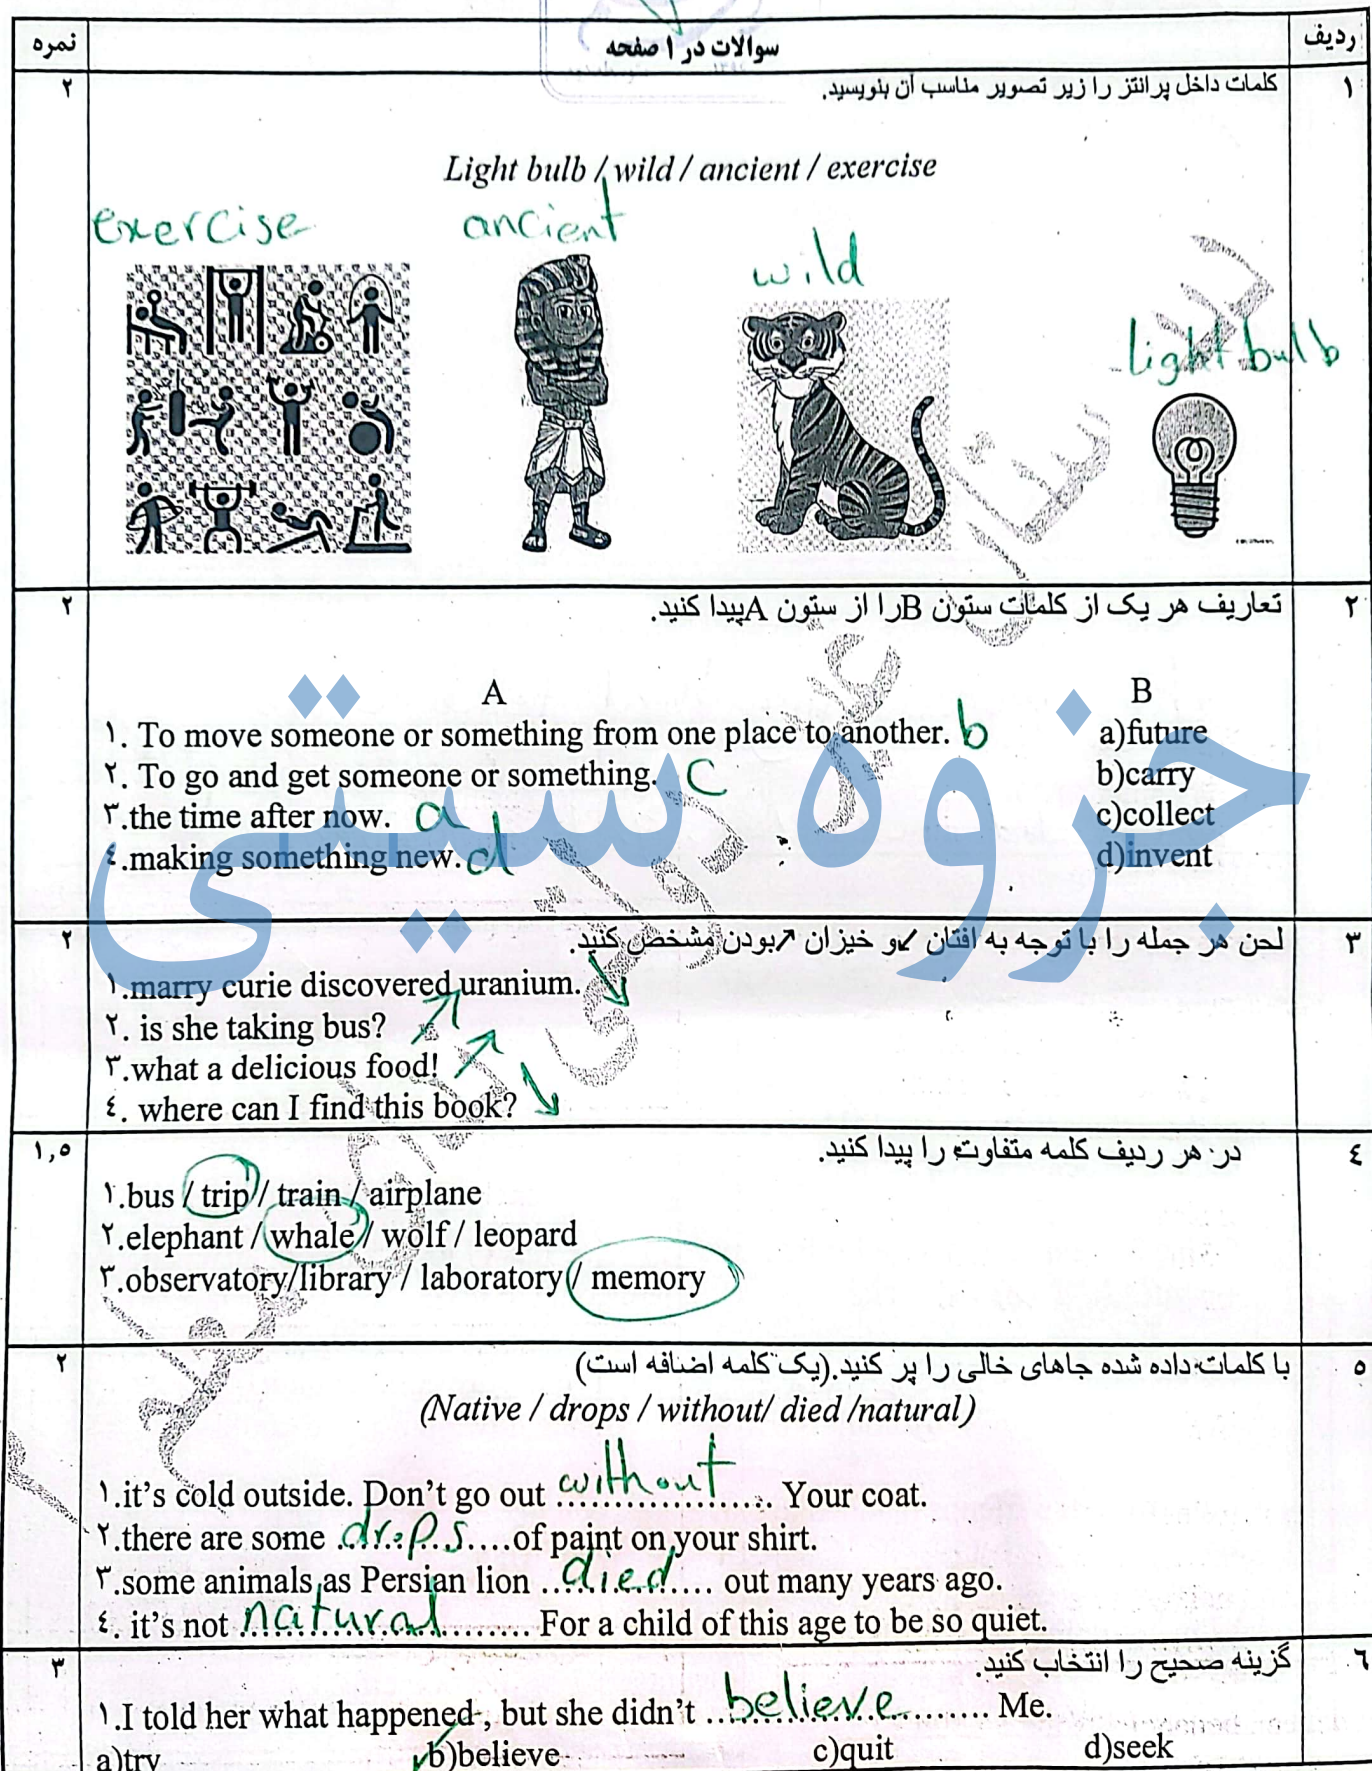 ردیف
سوالات در ۱ صفحه
نمره
۱
کلمات داخل پرانتز را زیر تصویر مناسب آن بنویسید.
۲
Light bulb / wild / ancient / exercise
exercise
ancient
wild
Light bulb
۲
تعاریف هر یک از کلمات ستون B را از ستون A پیدا کنید.
۲
A B
۱. To move someone or something from one place to another. b a)future
۲. To go and get someone or something. C b)carry
۳.the time after now. a c)collect
٤.making something new. d d)invent
جزوه سیتی
۳
لحن هر جمله را با توجه به افتان ↙و خیزان ↗بودن مشخص کنید.
۲
۱.marry curie discovered uranium. ↘
۲. is she taking bus? ↗
۳.what a delicious food! ↗
٤. where can I find this book? ↘
٤
در هر ردیف کلمه متفاوت را پیدا کنید.
۱,٥
۱.bus / trip / train / airplane
۲.elephant / whale / wolf / leopard
۳.observatory/library / laboratory / memory
٥
با کلمات داده شده جاهای خالی را پر کنید.(یک کلمه اضافه است)
۲
(Native / drops / without/ died /natural)
۱.it's cold outside. Don't go out without Your coat.
۲.there are some drops of paint on your shirt.
۳.some animals as Persian lion died out many years ago.
٤. it's not natural For a child of this age to be so quiet.
٦
گزینه صحیح را انتخاب کنید.
۳
۱.I told her what happened , but she didn't believe Me.
a)try b)believe c)quit d)seek